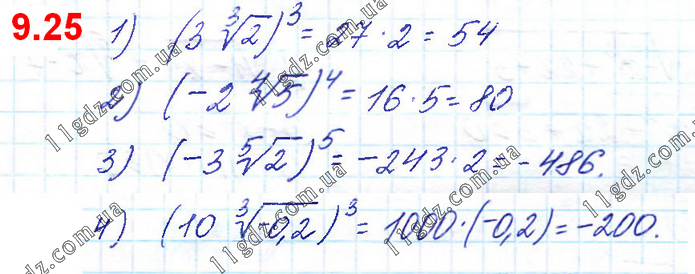 9.25
1) (3∛2)³ = 27·2 = 54
2) (-2∜5)⁴ = 16·5 = 80
3) (-3⁵√2)⁵ = -243·2 = -486.
4) (10∛-0,2)³ = 1000·(-0,2) = -200.
11gdz.com.ua
11gdz.com.ua
11gdz.com.ua
11gdz.com.ua
11gdz.com.ua
11gdz.com.ua